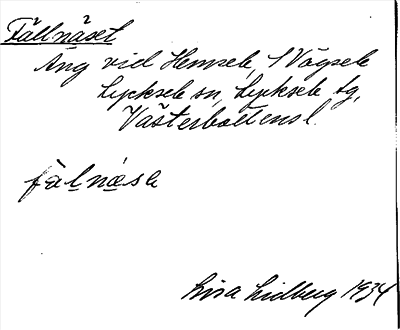 Fällnäset
Äng vid Hemsele, 1 Vägsele
Lycksele sn, Lycksele tg,
Västerbottensl.
fälnæsə
Lisa Lidberg 1934